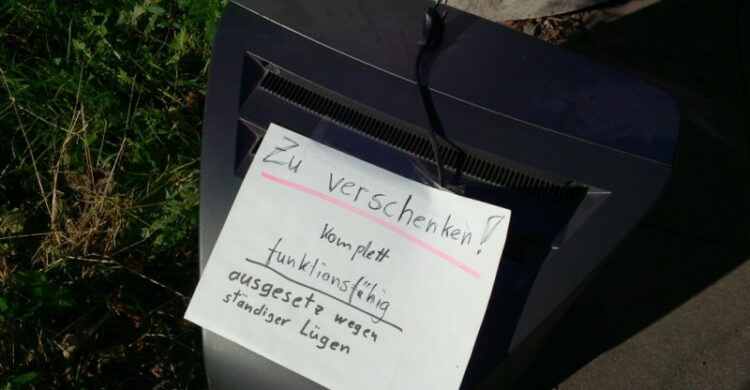 Zu verschenken!
komplett
funktionsfähig
ausgesetz wegen
ständiger Lügen